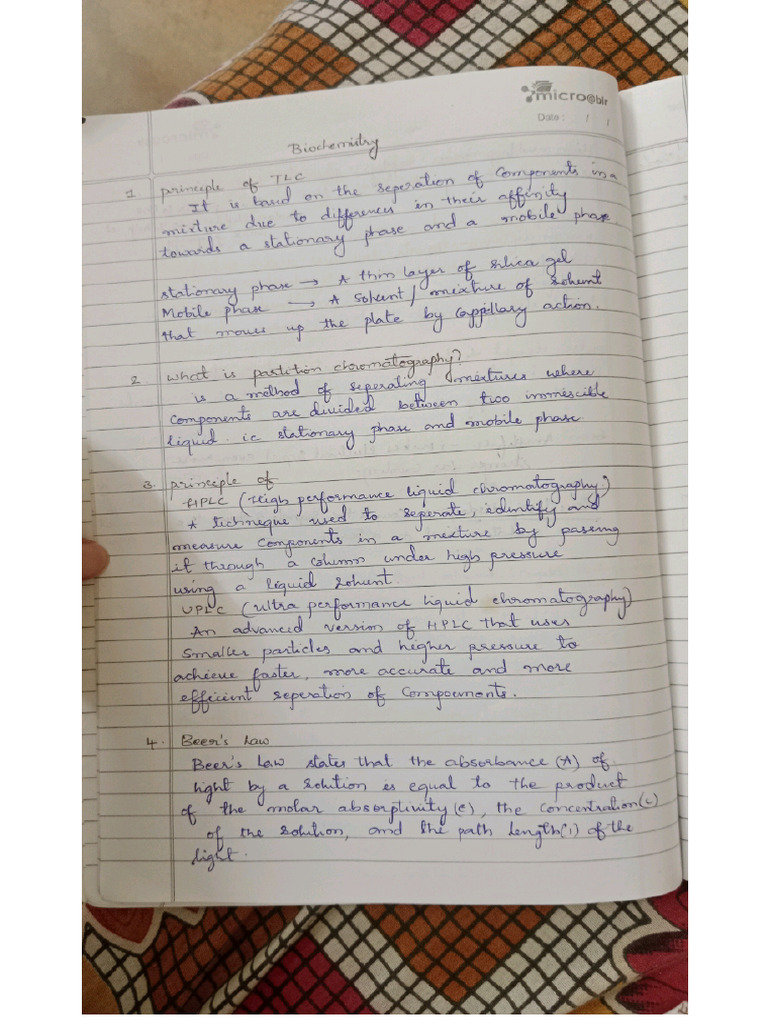 microlabs
Date : / /
Biochemistry
1 principle of TLC
It is based on the seperation of components in a
mixture due to differences in their affinity
towards a stationary phase and a mobile phase
stationary phase → A thin layer of silica gel
Mobile phase → A solvent / mixture of solvent
that moves up the plate by cappillary action.
2 What is partition chromatography?
is a method of seperating mixtures where
components are divided between two immescible
liquid. ie stationary phase and mobile phase.
3. principle of
HPLC (High performance liquid chromatography)
A techneque used to seperate, edintify and
measure components in a mexture by passing
it through a column under high pressure
using a liquid solvent.
UPLC (ultra performance liquid chromatography)
An advanced version of HPLC that uses
smaller particles and higher pressure to
achieve faster, more accurate and more
efficient seperation of compounents.
4. Beer's Law
Beer's law states that the absorbance (A) of
light by a solution is equal to the product
of the molar absorptivity (ε), the concentration (c)
of the solution, and the path length (l) of the
light.